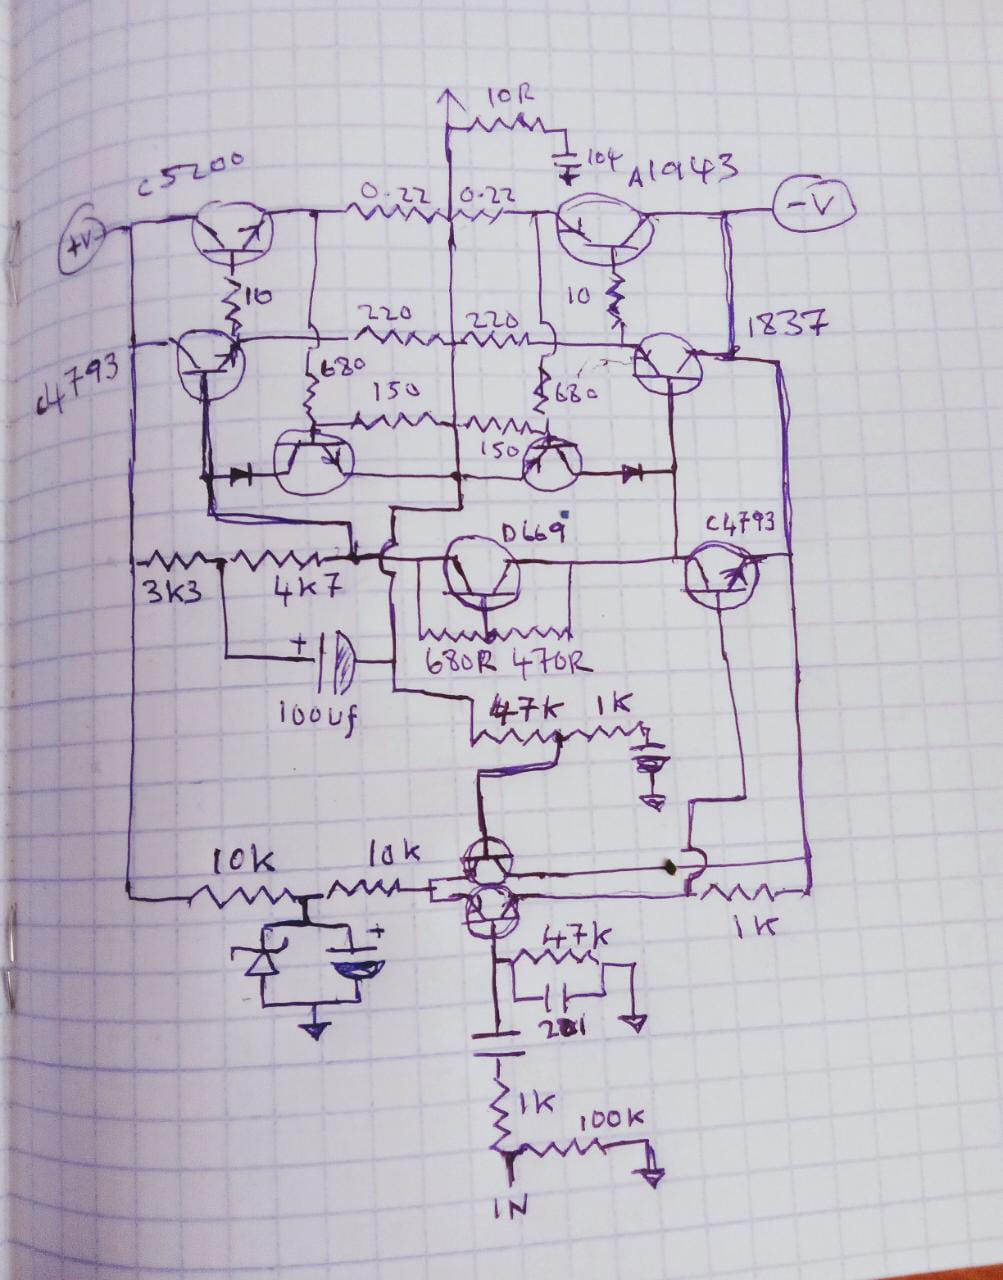 10R
104
C5200
0.22
0.22
A1943
+V
-V
10
10
220
220
1837
C4793
680
150
680
150
D669
C4793
3K3
4K7
+
680R
470R
100uf
47K
1K
10K
10K
1K
+
47K
1K
100K
IN